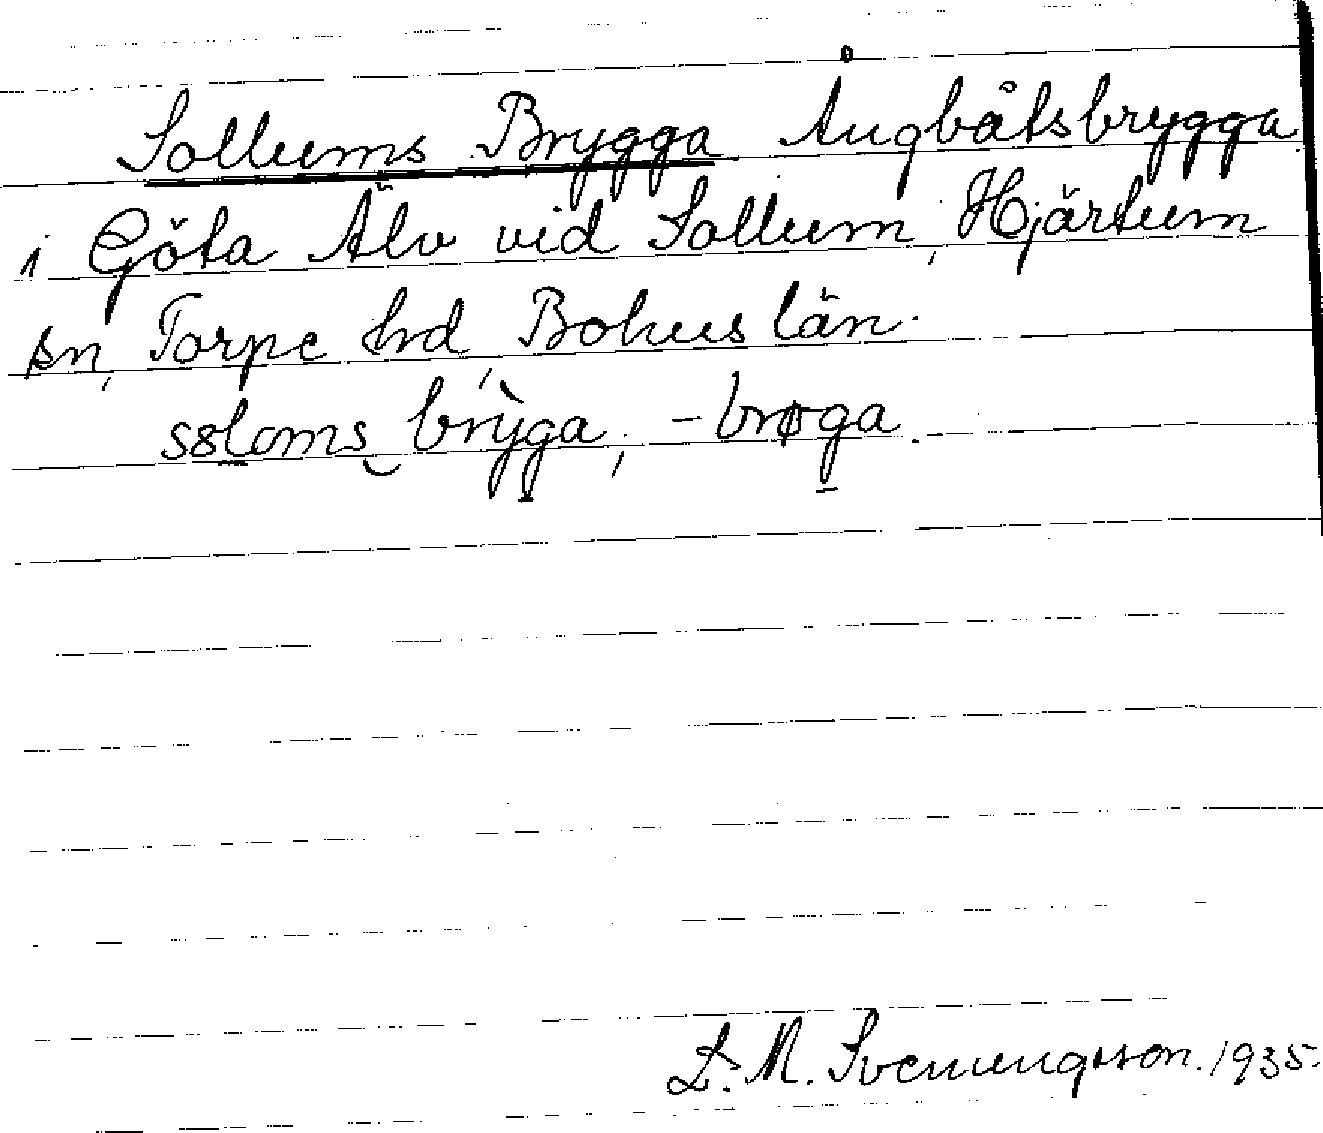 Sollums Brygga Ångbåtsbrygga
i Göta Älv vid Sollum, Hjärtum
sn, Torpe hd, Bohuslän.
ssloms brỳga, -brøga.
L. M. Svenungsson. 1935.